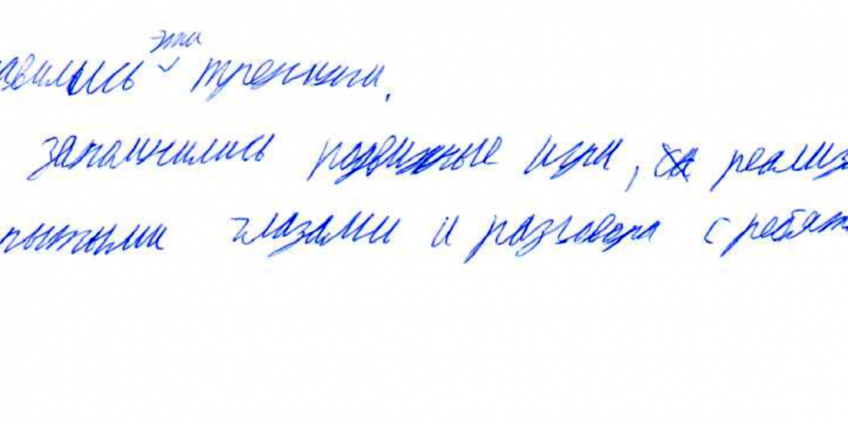 авились эти тренинги.
запомнились подвижные игры, реализ
рытыми глазами и разговоры с ребят